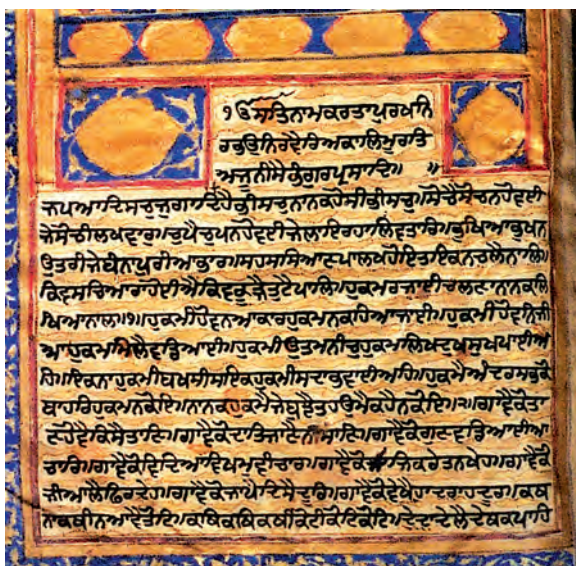 ੧ਓ ਸਤਿਨਾਮਕਰਤਾਪੁਰਖਨਿ
ਰਭਉਨਿਰਵੈਰਿਅਕਾਲਿਮੂਰਤਿ
ਅਜੂਨੀਸੈਭੰਗੁਰਪ੍ਰਸਾਦਿ॥ ॥
ਜਪਆਦਿਸਚੁਜੁਗਾਦਿਹੈਭੀਸਚਨਾਨਕਹੋਸੀਭੀਸਚੁ॥ਸੋਚੈਸੋਚਨਹੋਵਈ
ਜੇਸੋਚੀਲਖਵਾਰ॥ਚੁਪੈਚੁਪਨਹੋਵਈਜੇਲਾਇਰਹਾਲਿਵਤਾਰਿ॥ਭੁਖਿਆਭੁਖਨ
ਉਤਰੀਜੇਬੰਨਾਪੁਰੀਆਭਾਰ॥ਸਹਸਸਿਆਣਪਾਲਖਹੋਇਤਾਇਕਨਚਲੈਨਾਲਿ॥
ਕਿਵਸਚਿਆਰਹੋਈਐਕਿਵਕੂੜੈਤੁਟੈਪਾਲਿ॥ਹੁਕਮਰਜਾਈਚਲਣਾਨਾਨਕਲਿ
ਖਿਆਨਾਲ॥੧॥ਹੁਕਮੀਹੋਵਨਆਕਾਰਹੁਕਮਨਕਹਿਆਜਾਈ॥ਹੁਕਮੀਹੋਵਨਿਜੀ
ਆਹੁਕਮਮਿਲੈਵਡਿਆਈ॥ਹੁਕਮੀਉਤਮਨੀਚੁਹੁਕਮਲਿਖਦੁਖਸੁਖਪਾਈਅ
ਹਿ॥ਇਕਨਾਹੁਕਮੀਬਖਸੀਸਇਕਹੁਕਮੀਸਦਾਭਵਾਈਅਹਿ॥ਹੁਕਮੈਅੰਦਰਸਭਕੋ
ਬਾਹਰਿਹੁਕਮਨਕੋਇ॥ਨਾਨਕਹੁਕਮੈਜੇਬੁਝੈਤਹਉਮੈਕਹੈਨਕੋਇ॥੨॥ਗਾਵੈਕੋਤਾ
ਣਹੋਵੈਕਿਸੈਤਾਣਿ॥ਗਾਵੈਕੋਦਾਤਿਜਾਣੈਨੀਸਾਣਿ॥ਗਾਵੈਕੋਗੁਣਵਡਿਆਈਆ
ਚਾਰ॥ਗਾਵੈਕੋਵਿਦਿਆਵਿਖਮੁਵੀਚਾਰ॥ਗਾਵੈਕੋਸਾਜਿਕਰੇਤਨਖੇਹ॥ਗਾਵੈਕੋ
ਜੀਆਲੈਫਿਰਦੇਹ॥ਗਾਵੈਕੋਜਾਪੈਦਿਸੈਦੂਰਿ॥ਗਾਵੈਕੋਵੇਖੈਹਾਦਰਾਹਦੂਰ॥ਕਥ
ਨਾਕਥੀਨਆਵੈਤੋਟਿ॥ਕਥਿਕਥਿਕਥੀਕੋਟੀਕੋਟਿਕੋਟਿ॥ਦੇਦਾਦੇਲੈਦੇਥਕਪਾਹਿ